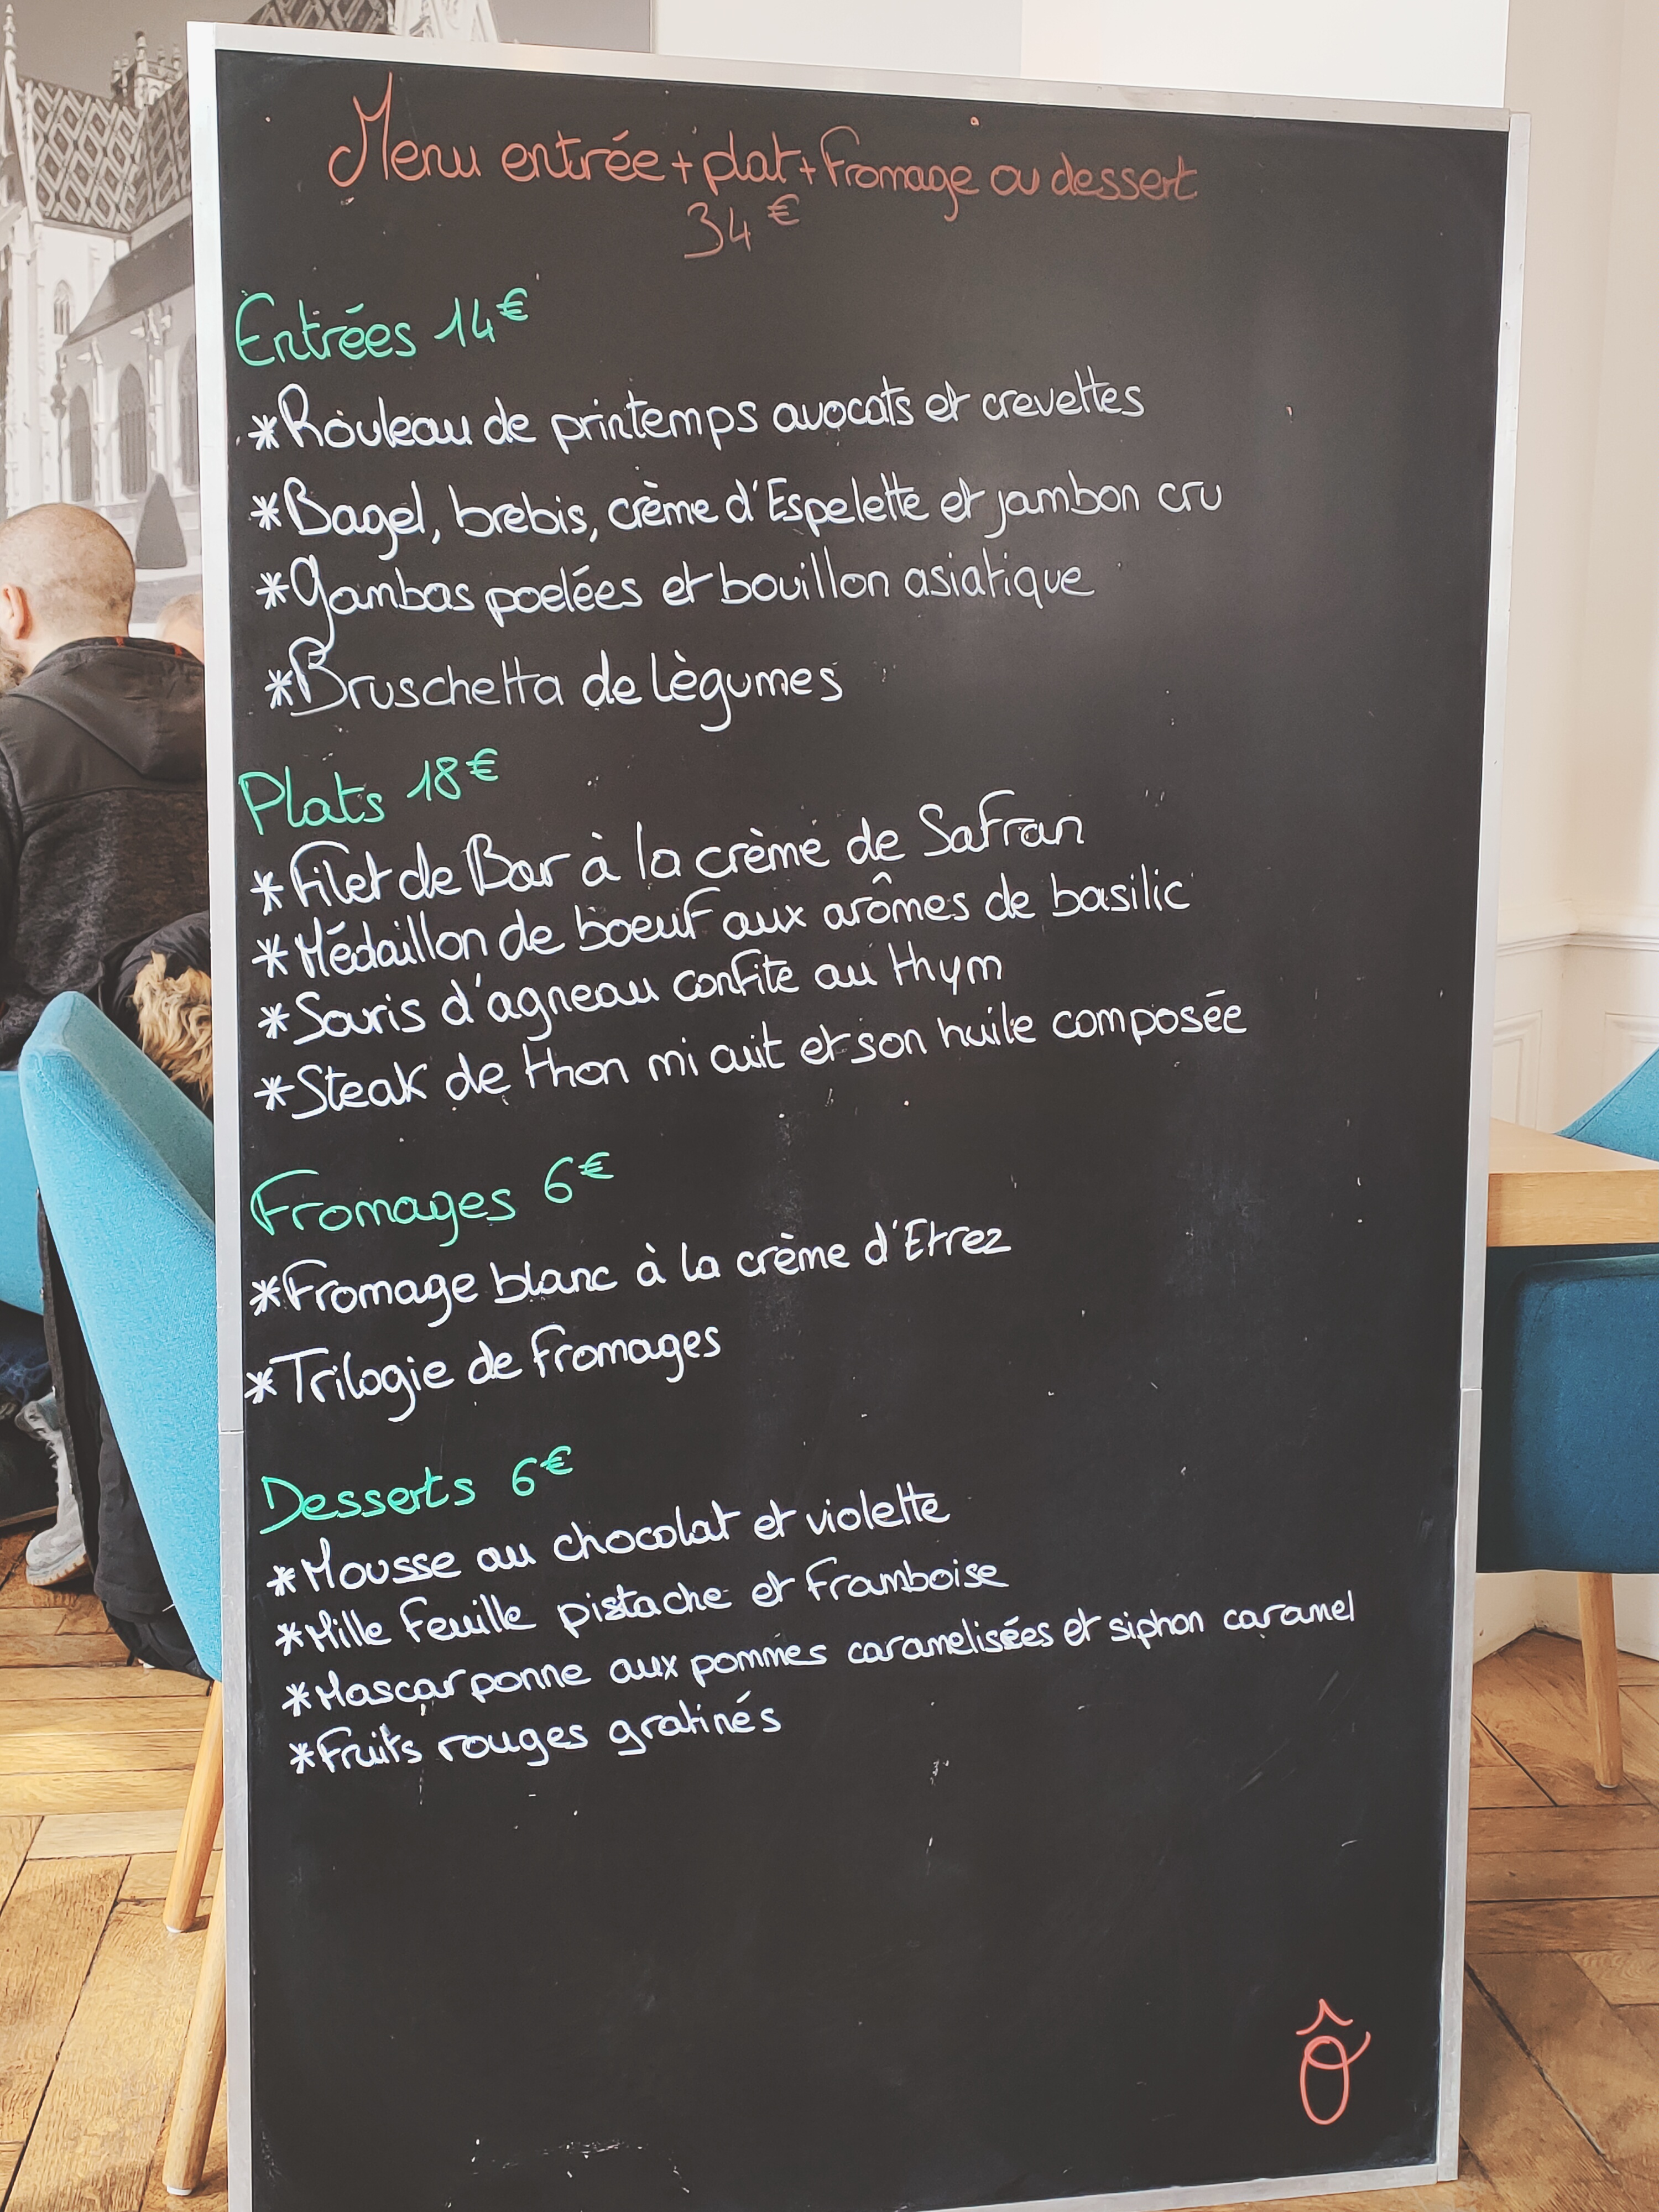 Menu entrée + plat + fromage ou dessert
34€
Entrées 14€
*Rouleau de printemps avocats et crevettes
*Bagel, brebis, crème d'Espelette et jambon cru
*Gambas poelées et bouillon asiatique
*Bruschetta de lègumes
Plats 18€
*Filet de Bar à la crème de Safran
*Médaillon de boeuf aux arômes de basilic
*Souris d'agneau confite au thym
*Steak de thon mi cuit et son huile composée
Fromages 6€
*Fromage blanc à la crème d'Etrez
*Trilogie de fromages
Desserts 6€
*Mousse au chocolat et violette
*Mille feuille pistache et framboise
*Mascarponne aux pommes caramelisées et siphon caramel
*Fruits rouges gratinés
Ô